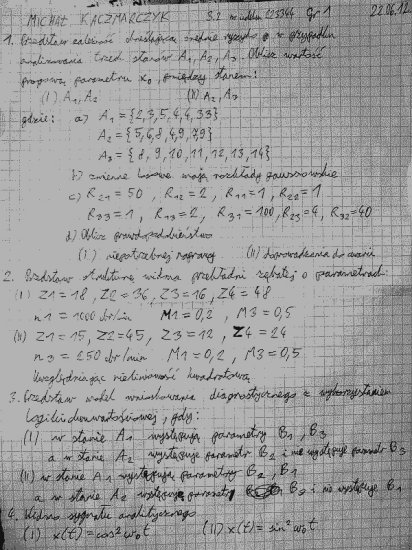 MICHAŁ KACZMARCZYK S.I. nr indeksu 225344 Gr 1 22.06.12
1. Przedstaw zależność określającą średnie ryzyko w przypadku
analizowania trzech stanów A1, A2, A3. Oblicz wartość
progową parametru x0, pomiędzy stanem:
(I) A1, A2 (II) A2, A3
gdzie: a) A1 = {2,3,5,4,4,3,3}
A2 = {5,6,8,4,9,7,9}
A3 = {8,9,10,11,12,13,14}
b) zmienne losowe mają rozkłady gaussowskie
c) R21 = 50, R12 = 2, R11 = 1, R22 = 1
R33 = 1, R13 = 2, R31 = 100, R23 = 4, R32 = 40
d) Oblicz prawdopodobieństwo
(I) niepotrzebnej naprawy (II) doprowadzenia do awarii
2. Przedstaw strukturę widma przekładni zębatej o parametrach:
(I) Z1 = 18, Z2 = 36, Z3 = 16, Z4 = 48
n1 = 1000 obr/min M1 = 0,2, M3 = 0,5
(II) Z1 = 15, Z2 = 45, Z3 = 12, Z4 = 24
n3 = 250 obr/min M1 = 0,2, M3 = 0,5
Uwzględniając nieliniowość kwadratową
3. Przedstaw model wnioskowania diagnostycznego z wykorzystaniem
logiki dwuwartościowej, gdy:
(I) w stanie A1 występują parametry B1, B3
a w stanie A2 występuje parametr B2 i nie występuje parametr B3
(II) w stanie A1 występują parametry B2, B1
a w stanie A2 występuje parametr B3 i nie występuje B1
4. Widmo sygnału analitycznego
(I) x(t) = cos² ω0 t (II) x(t) = sin² ω0 t